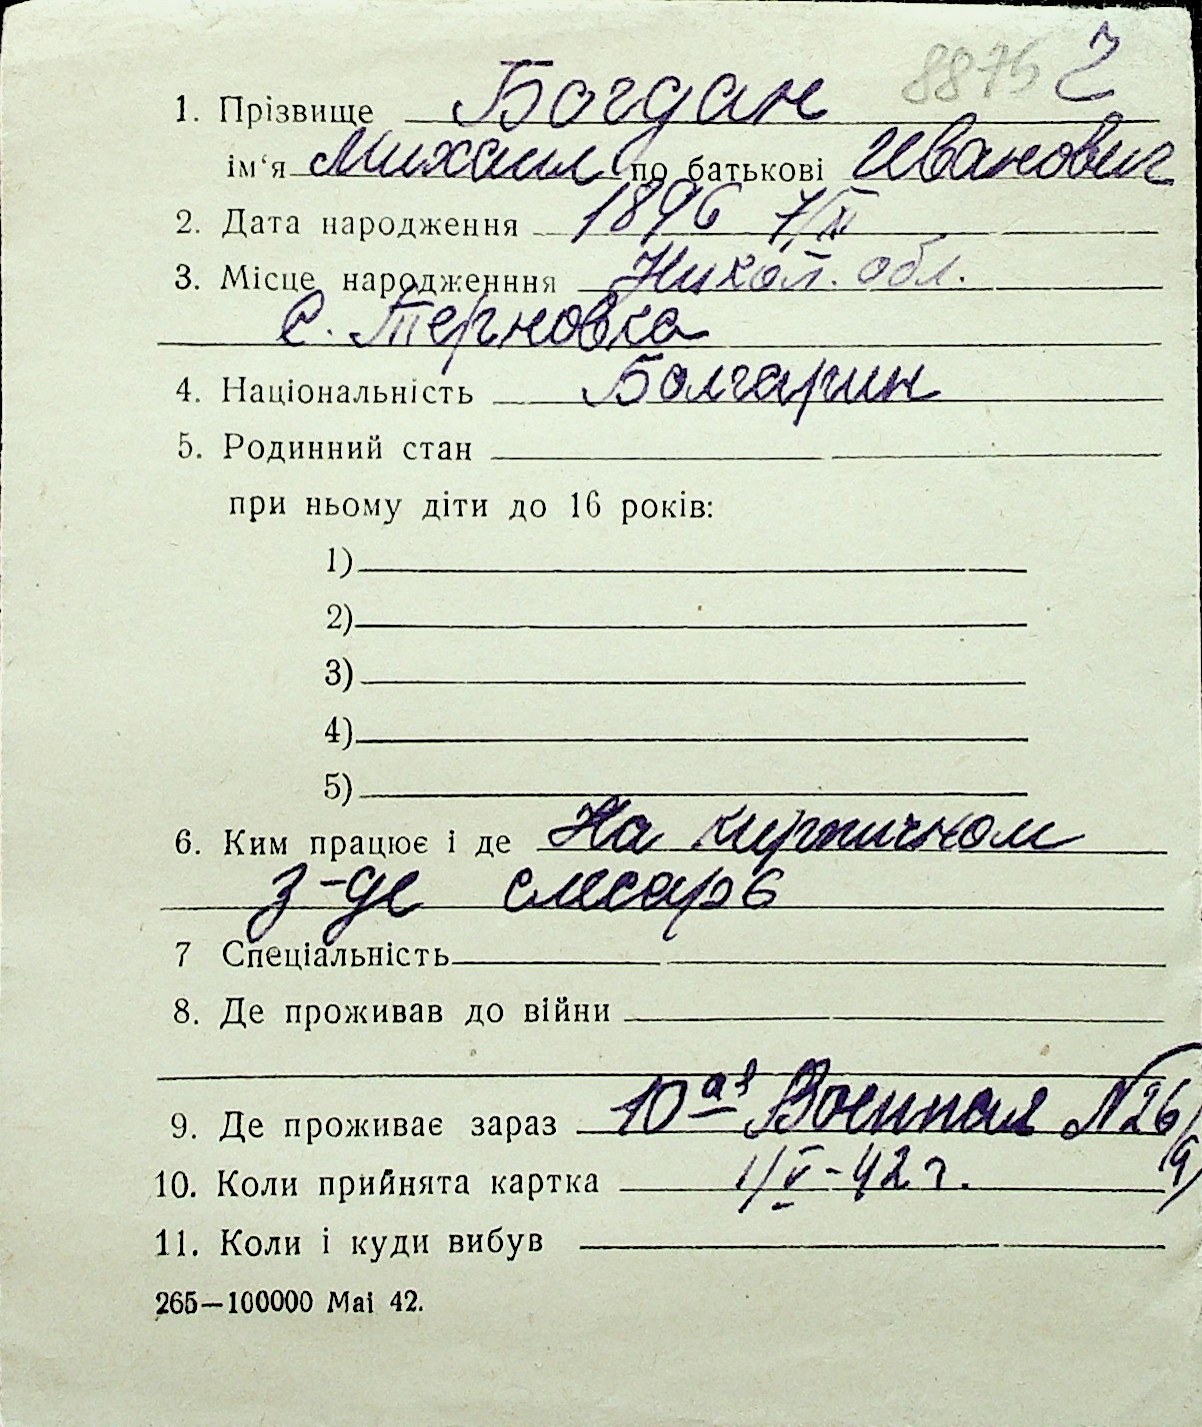 8875 2
1. Прізвище Богдан
ім‘я Михаил по батькові Иванович
2. Дата народження 1896 7/XI
3. Місце народженння Никол. обл.
с. Терновка
4. Національність Болгарин
5. Родинний стан
при ньому діти до 16 років:
1)
2)
3)
4)
5)
6. Ким працює і де На кирпичном
з-де слесарь
7 Спеціальність
8. Де проживав до війни
9. Де проживає зараз 10ая Военная №26/
10. Коли прийнята картка 1/V-42 г.
11. Коли і куди вибув
265—100000 Mai 42.